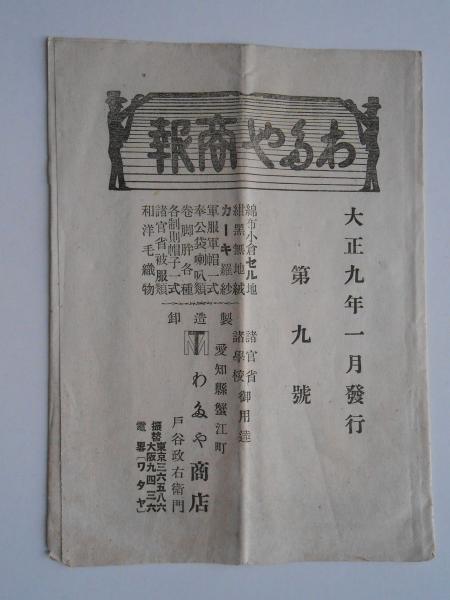 わたや商報
大正九年一月發行
第九號
綿布小倉セル地
紺黑無地絨
カーキ羅紗
軍服軍帽一式
奉公袋喇叭類
卷脚胖各種
各制則帽子一式
諸官省被服類
和洋毛織物
製造卸
諸官省御用達
諸學校
愛知縣蟹江町
わたや商店
戸谷政右衛門
振替東京三六五八六
大阪九四三六
電畧〔ワタヤ〕